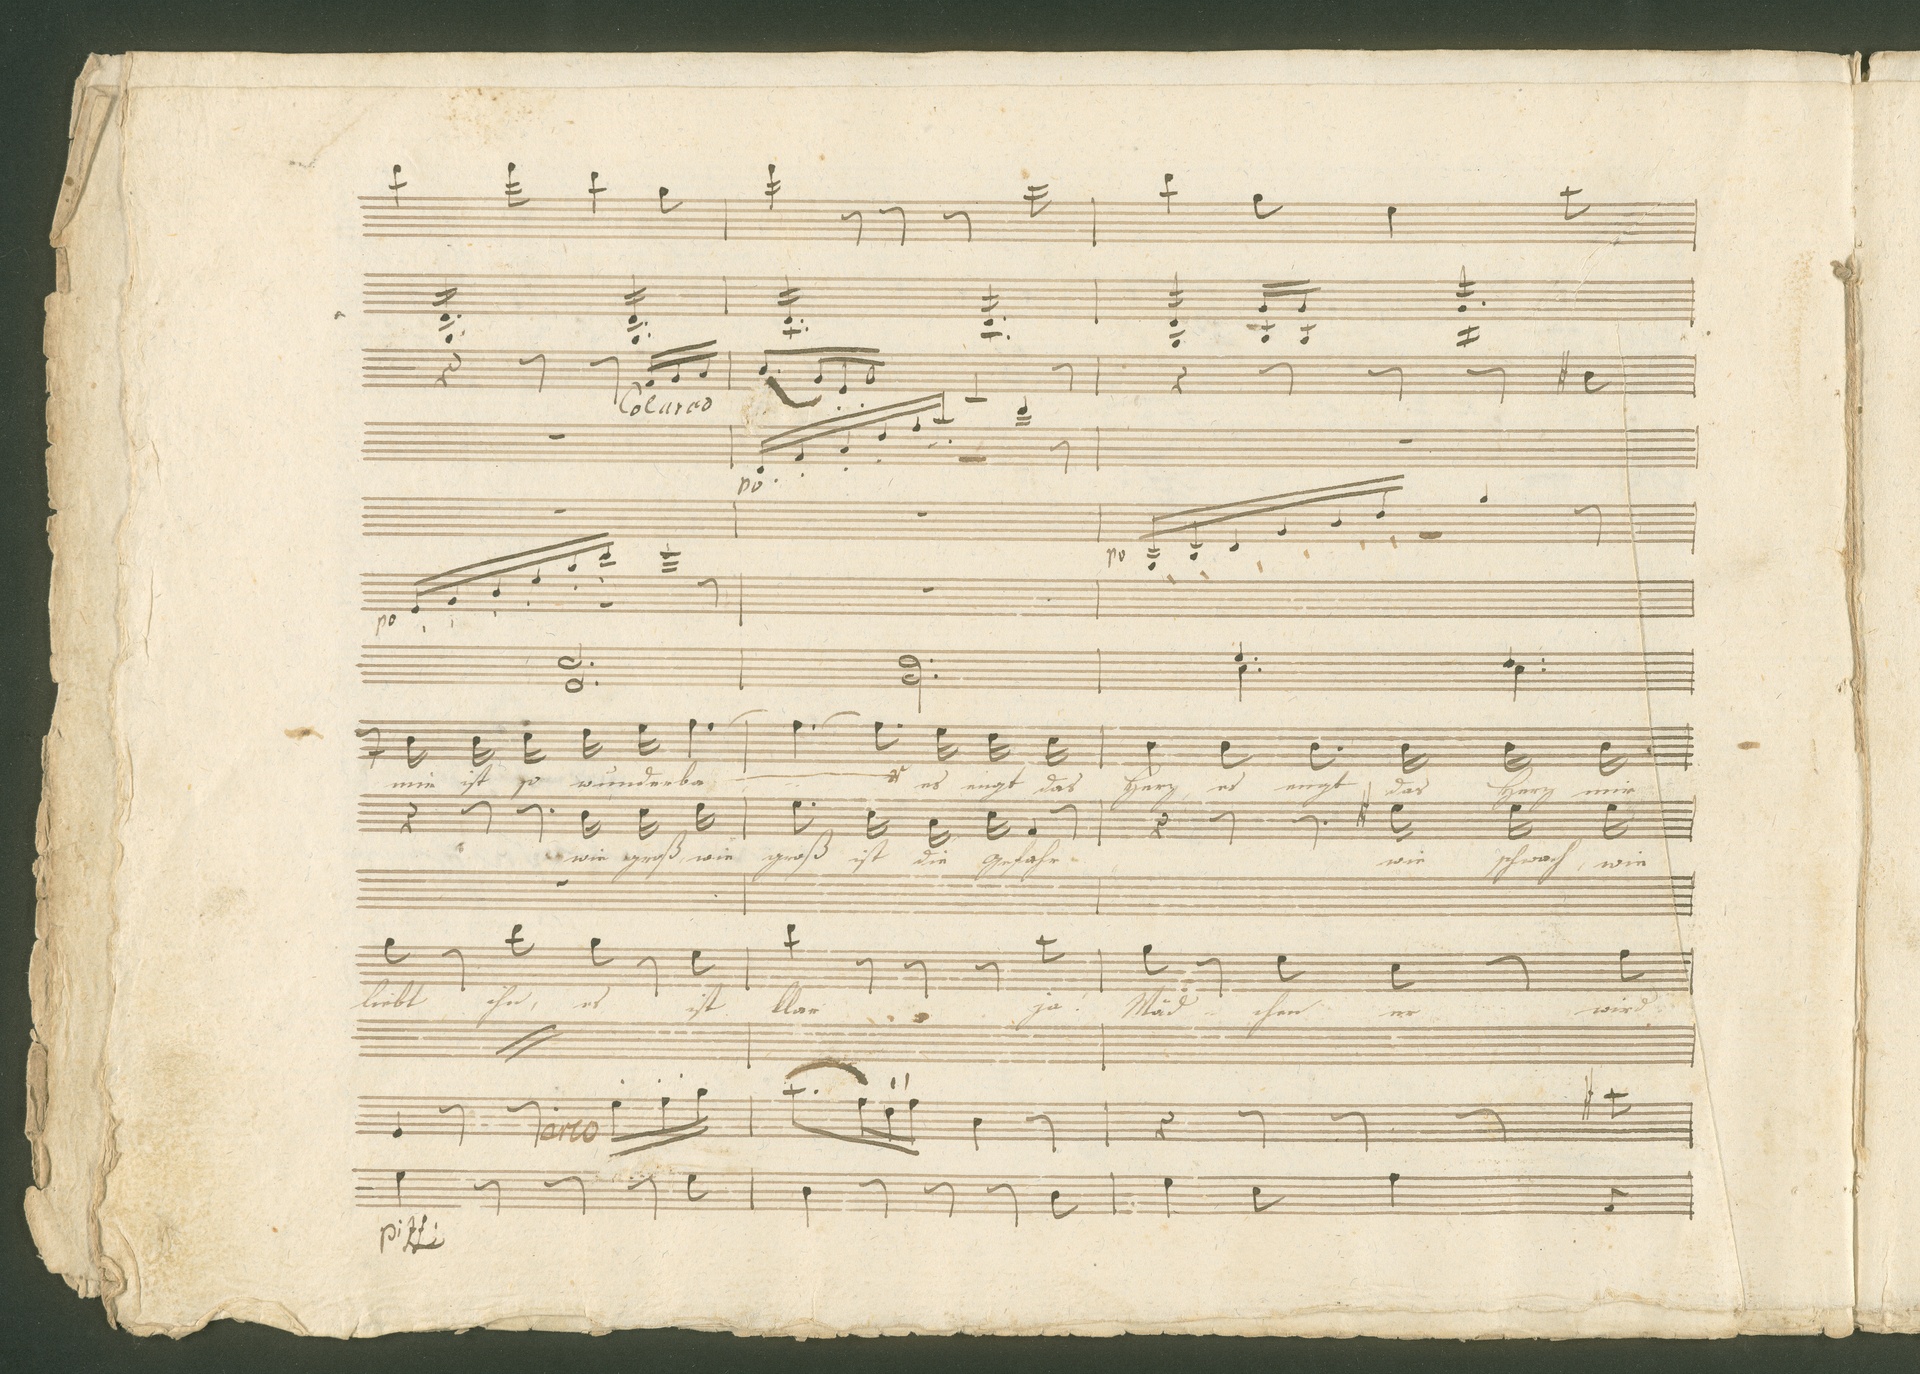 Colarco
po
po
po
mir ist so wunderba - - - r es engt das Herz, es engt das Herz mir
wie groß, wie groß ist die Gefahr wie schwach, wie
liebt ihn, es ist klar ja Mäd - chen er wird
arco
pizzi